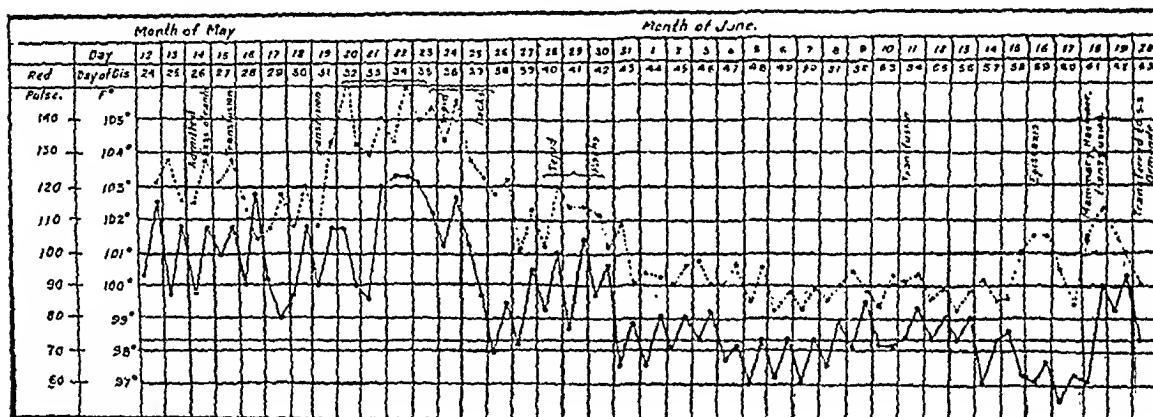 Month of May Month of June.
Day 12 13 14 15 16 17 18 19 20 21 22 23 24 25 26 27 28 29 30 31 1 2 3 4 5 6 7 8 9 10 11 12 13 14 15 16 17 18 19 20
Red Day of Dis 24 25 26 27 28 29 30 31 32 33 34 35 36 37 38 39 40 41 42 43 44 45 46 47 48 49 50 51 52 53 54 55 56 57 58 59 60 61 62 63
Pulse. F°
140 105°
130 104°
120 103°
110 102°
100 101°
90 100°
80 99°
70 98°
60 97°
Admitted
Transfusion
Tepid
Packs
Tepid
Transfusion
Epistaxis
Mammary Haemorr.
Transfusion
Transferred to